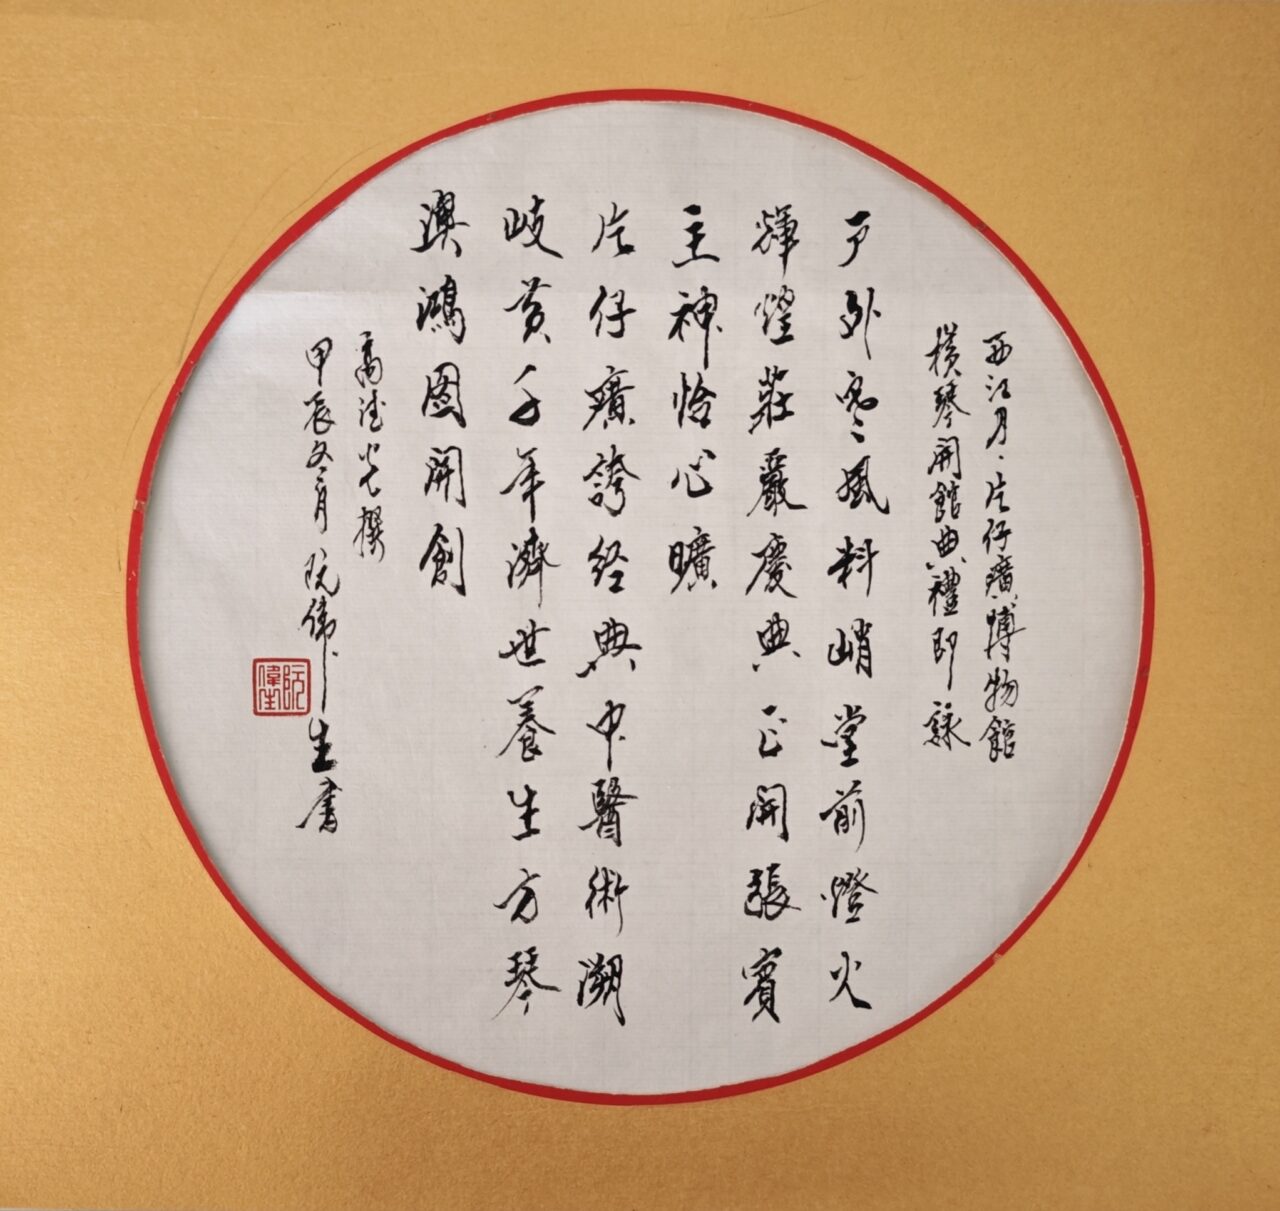 西江月·片仔癀博物館
橫琴開館典禮即詠
戶外寒風料峭堂前燈火
輝煌莊嚴慶典正開張賓
主神怡心曠
片仔癀誇经典中醫術溯
岐黃千年濟世養生方琴
澳鴻图開創
高 光撰
甲辰冬月阮偉生書
阮偉生